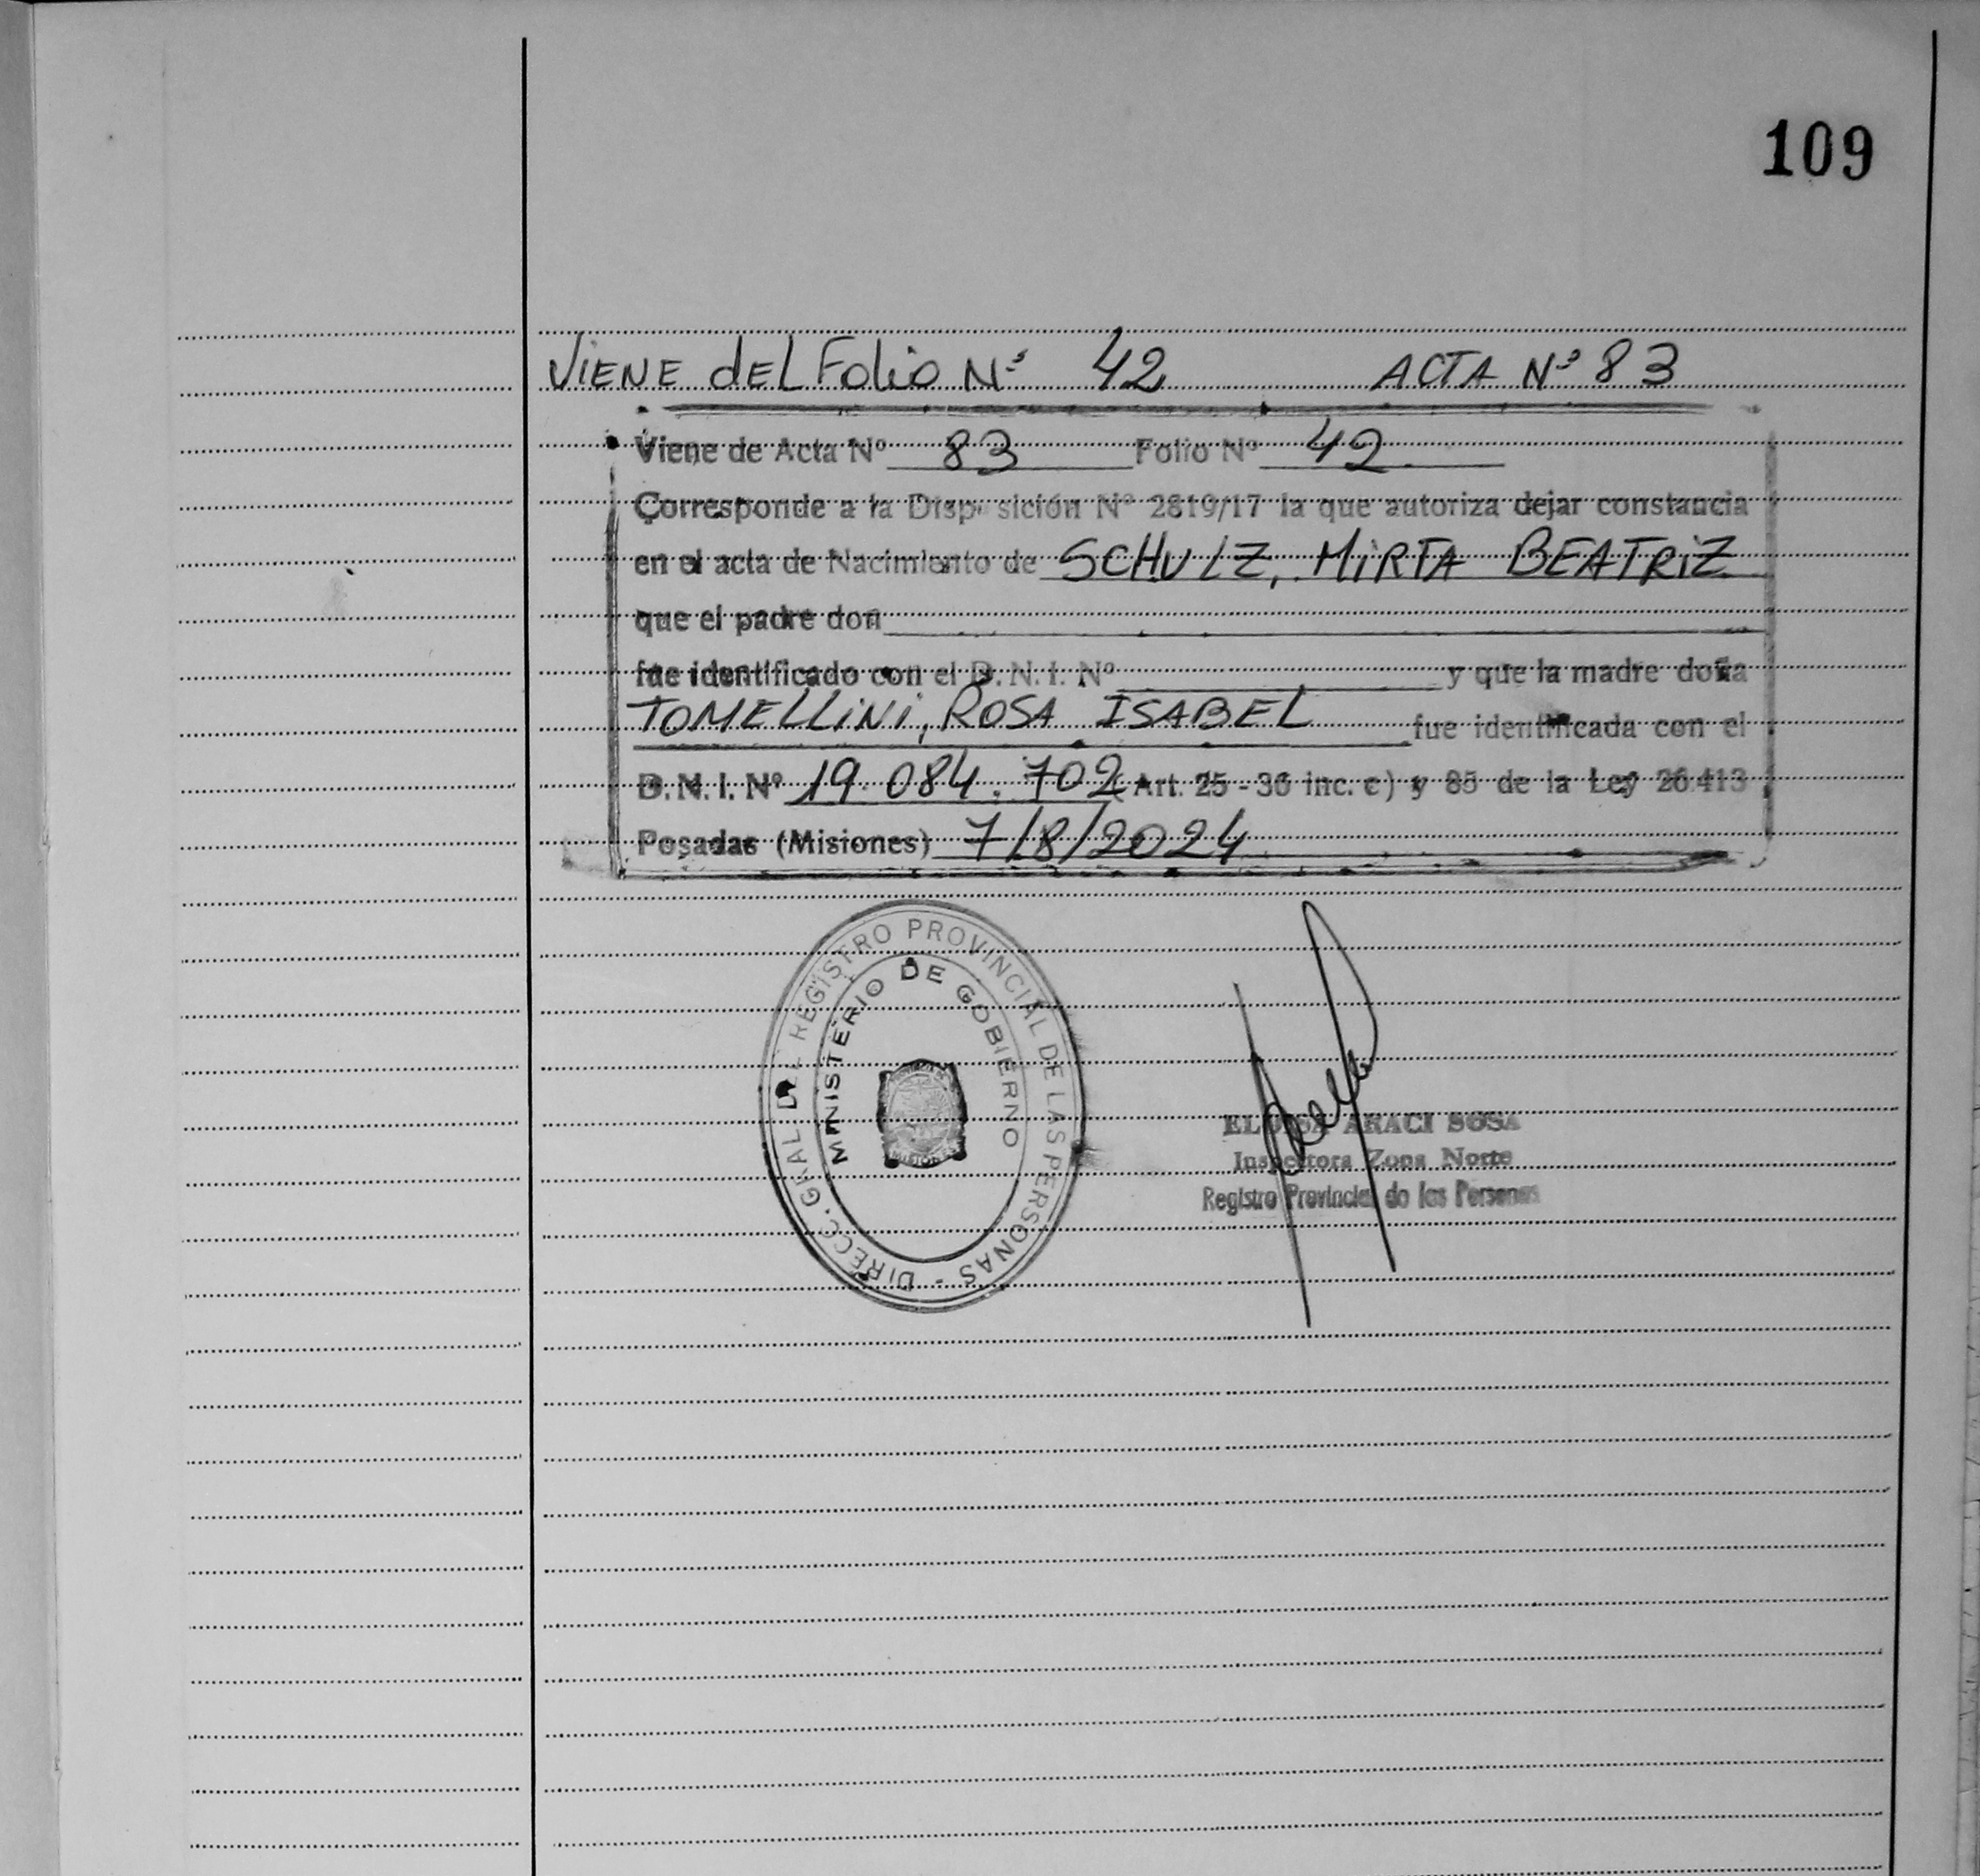 109
VIENE dEL FOLIO Nº 42 ACTA Nº 83
Viene de Acta Nº 83 Folio Nº 42
Corresponde a la Disposición Nº 2819/17 la que autoriza dejar constancia
en el acta de Nacimiento de SCHULZ, MIRTA BEATRIZ
que el padre don
fue identificado con el D.N.I. Nº y que la madre doña
TOMELLINI, ROSA ISABEL fue identificada con el
D.N.I. Nº 19.084.702 (Art. 25 - 36 inc. c) y 85 de la Ley 26.413
Posadas (Misiones) 7/8/2024
DIRECC. GRAL. DEL REGISTRO PROVINCIAL DE LAS PERSONAS -
MINISTERIO DE GOBIERNO
MISIONES
ARACI SOSA
Inspectora Zona Norte
Registro Provincial de las Personas